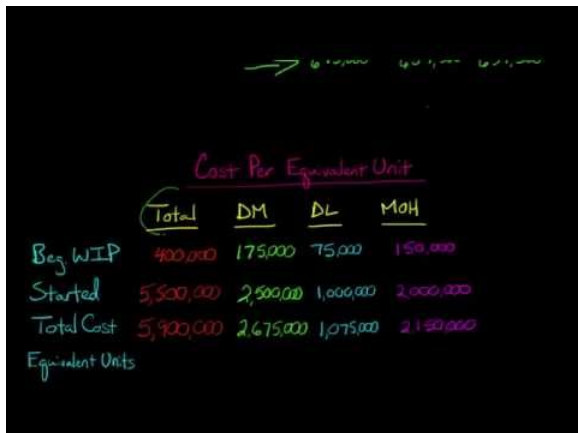 Cost Per Equivalent Unit
Total DM DL MOH
Beg. WIP 400,000 175,000 75,000 150,000
Started 5,500,000 2,500,000 1,000,000 2,000,000
Total Cost 5,900,000 2,675,000 1,075,000 2,150,000
Equivalent Units